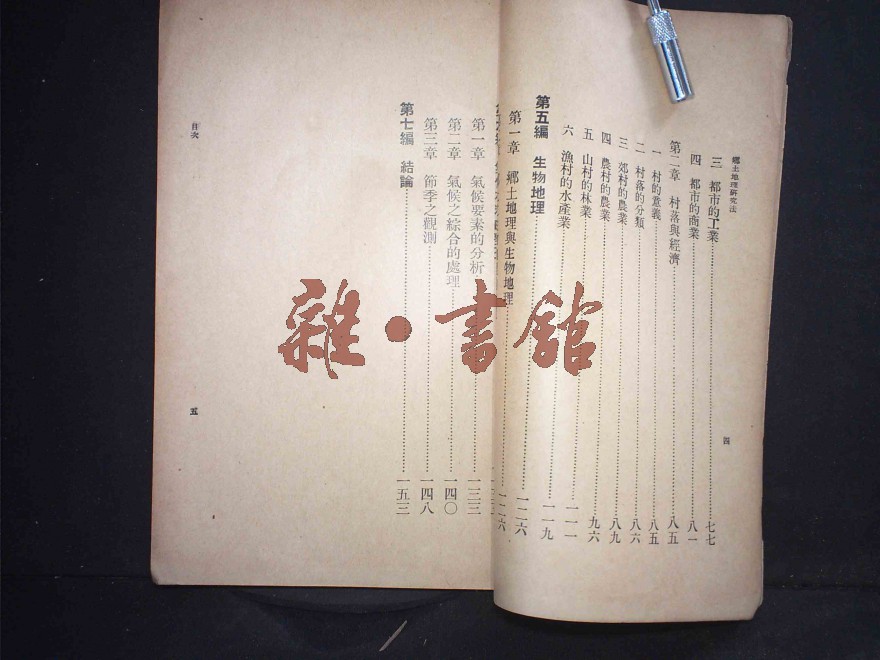 鄉土地理研究法
三 都市的工業……七七
四 都市的商業……八一
第二章 村落與經濟……八五
一 村的意義……八五
二 村落的分類……八六
三 郊村的農業……八九
四 農村的農業……九六
五 山村的林業……一一一
六 漁村的水產業……一一九
第五編 生物地理……一二六
第一章 鄉土地理與生物地理……一二六
四
第一章 氣候要素的分析……一三三
第二章 氣候之綜合的處理……一四〇
第三章 節季之觀測……一四八
第七編 結論……一五三
目次
五
雜·書館